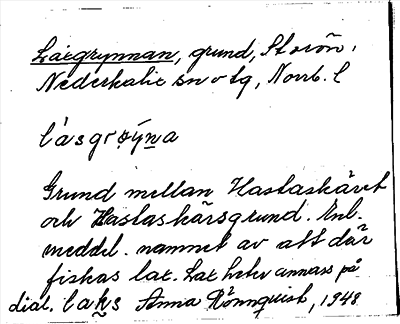 Laxgrynnan, grund, Storön,
Nederkalix sn o tg, Norrb. l
làsgrøýna
Grund mellan Hastaskäret
och Hastaskärsgrund. Enl.
meddel. namnet av att där
fiskas lax. Lax heter annars på
dial. laks Anna Rönnquist, 1948